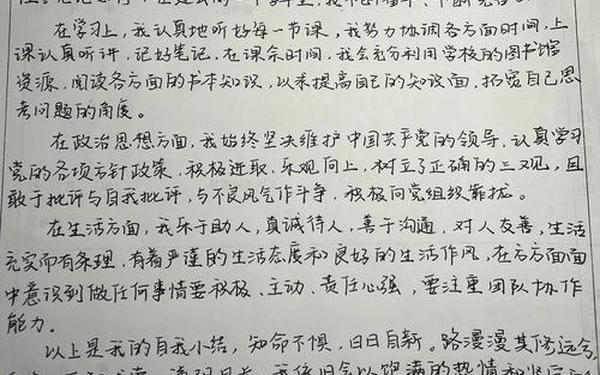 在学习上,我认真地听好每一节课,我努力协调各方面时间,上
课认真听讲,记好笔记,在课余时间,我会充分利用学校的图书馆
资源,阅读各方面的书本知识,以来提高自己的知识面,拓宽自己思
考问题的角度。
在政治思想方面,我始终坚决维护中国共产党的领导,认真学习
党的各项方针政策,积极进取,乐观向上,树立了正确的三观,且
敢于批评与自我批评,与不良风气作斗争,积极向党组织靠拢。
在生活方面,我乐于助人,真诚待人,善于沟通,对人友善,生活
充实而有条理,有着严谨的生活态度和良好的生活作风,在方方面面
中意识到做任何事情要积极、主动、责任心强,要注重团队协作
能力。
以上是我的自我小结,知命不惧,日日自新。路漫漫其修远兮,
我依旧会以饱满的热情和坚定